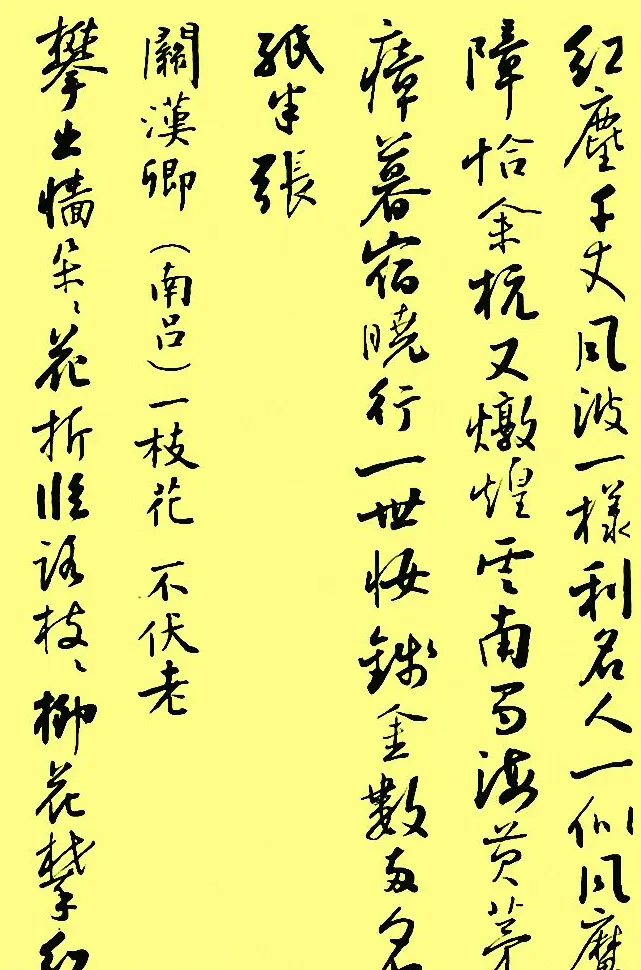 红塵千丈風波一樣利名人一似風魔
障恰余杭又燉煌雲南蜀海黄茅
瘴暮宿曉行一世忙錢金數兩名
紙半張
關漢卿（南吕）一枝花 不伏老
攀出牆朵〻花折臨路枝〻柳花攀红